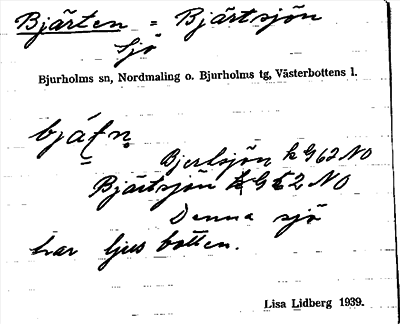 Bjärten = Bjärtsjön
sjö
Bjurholms sn, Nordmaling o. Bjurholms tg, Västerbottens l.
Bjertsjön k G 62 NO
Bjärtsjön G 2 NO
Denna sjö
har ljus botten.
Lisa Lidberg 1939.